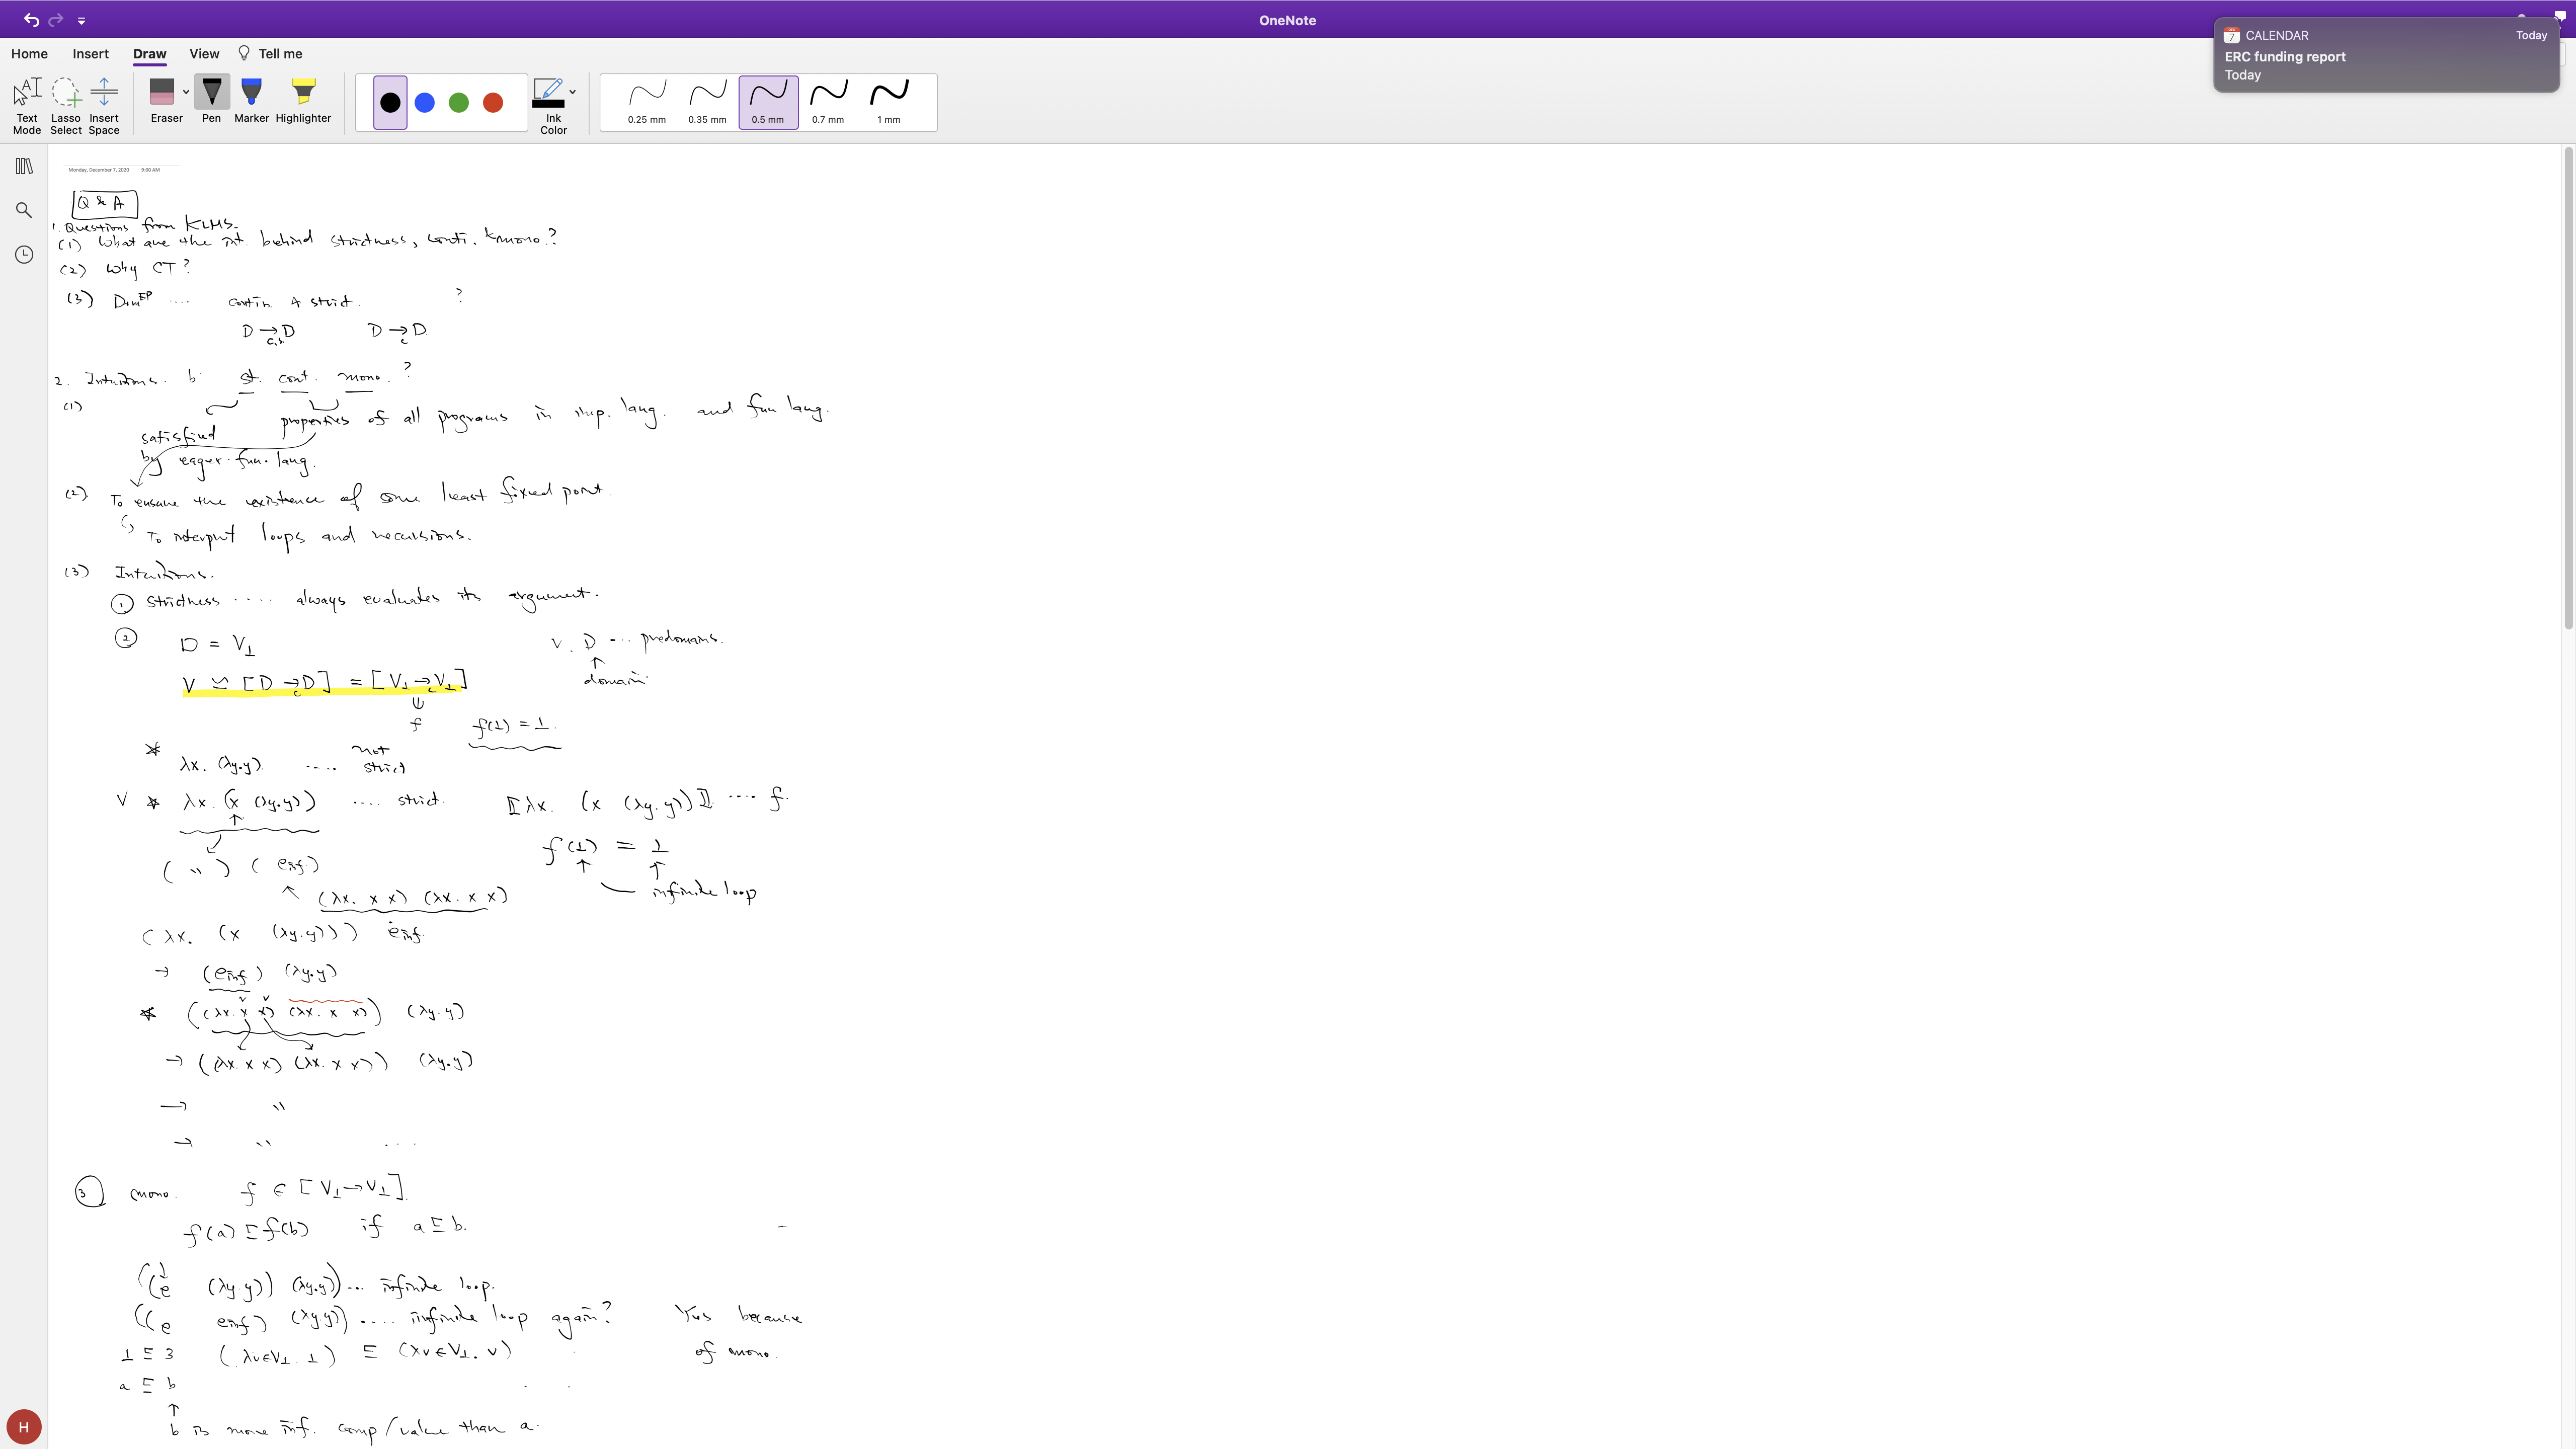 OneNote
CALENDAR Today
ERC funding report
Today
Home Insert Draw View Tell me
Text Mode Lasso Select Insert Space Eraser Pen Marker Highlighter Ink Color 0.25 mm 0.35 mm 0.5 mm 0.7 mm 1 mm
Monday, December 7, 2020 9:00 AM
Q & A
1. Questions from KLMS.
(1) What are the int. behind strictness, conti. & mono.?
(2) Why CT?
(3) Dom^EP .... contin & strict. ?
D →c,s D D →c D
2. Intuitions. b. st. cont. mono.?
(1)
properties of all programs in imp. lang. and fun lang.
satisfied
by eager fun. lang.
(2) To ensure the existence of some least fixed point.
To interpret loops and recursions.
(3) Intuitions.
① Strictness .... always evaluates its argument.
② D = V⊥ V. D ... predomains.
↑
V ≃ [D →c D] = [V⊥ →c V⊥] domain
f f(⊥) = ⊥.
* λx. (λy.y) .... not strict
V * λx. (x (λy.y)) .... strict. ⟦λx. (x (λy.y))⟧ .... f.
↑
f(⊥) = ⊥
( " ) ( einf ) ↑ ↑
infinite loop
(λx. x x) (λx. x x)
(λx. (x (λy.y))) einf.
→ (einf) (λy.y)
* ((λx. x x) (λx. x x)) (λy.y)
→ ((λx. x x) (λx. x x)) (λy.y)
→ "
→ " ....
③ mono. f ∈ [V⊥ → V⊥].
f(a) ⊑ f(b) if a ⊑ b.
((e (λy.y)) (λy.y)) ... infinite loop.
((e einf) (λy.y)) .... infinite loop again? Yes because
⊥ ⊑ 3 (λv∈V⊥. ⊥) ⊑ (λv∈V⊥. v) of mono.
a ⊑ b
↑
b is more inf. comp/value than a.
H